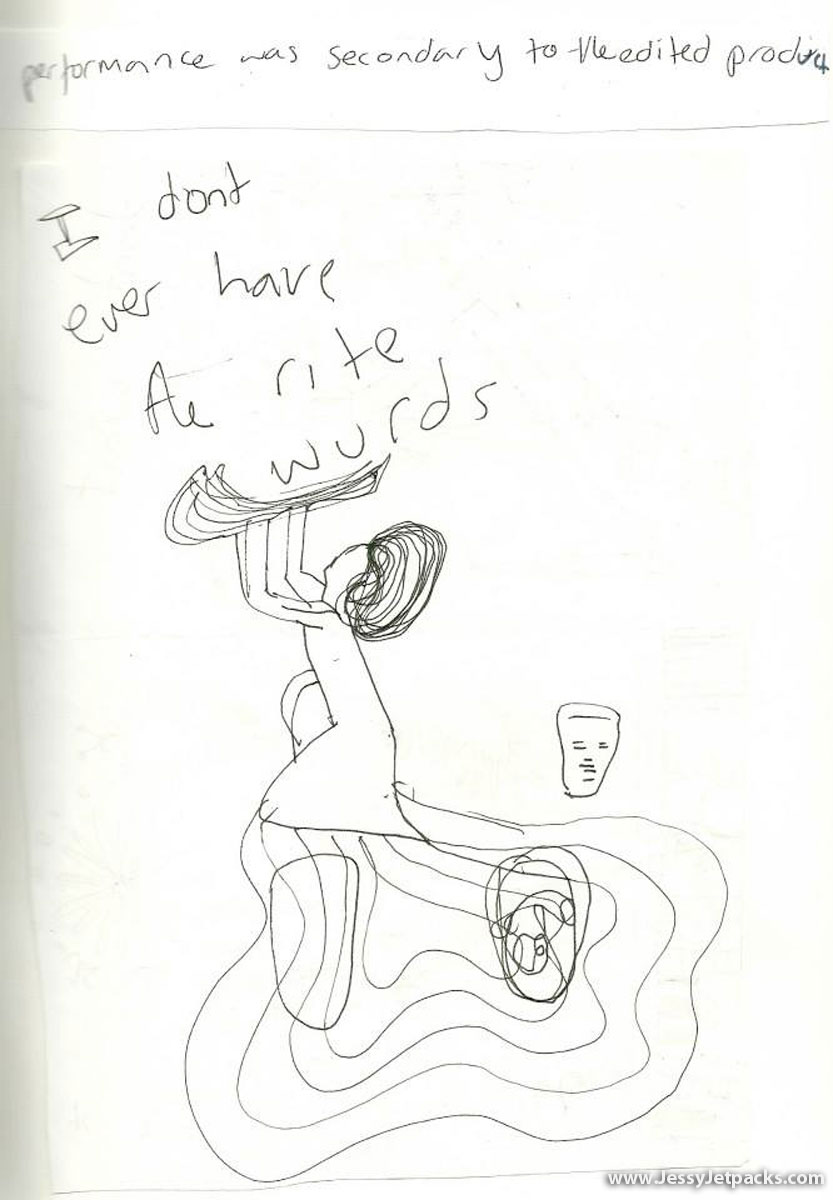 performance was secondary to the edited product
I dont
ever have
the rite
wurds
www.JessyJetpacks.com